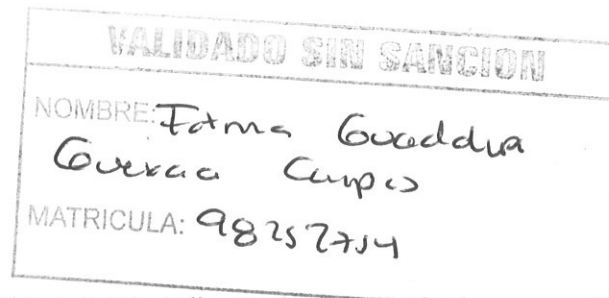 VALIDADO SIN SANCION
NOMBRE: Fatma Guaddlua
Guerra Campos
MATRICULA: 98252754